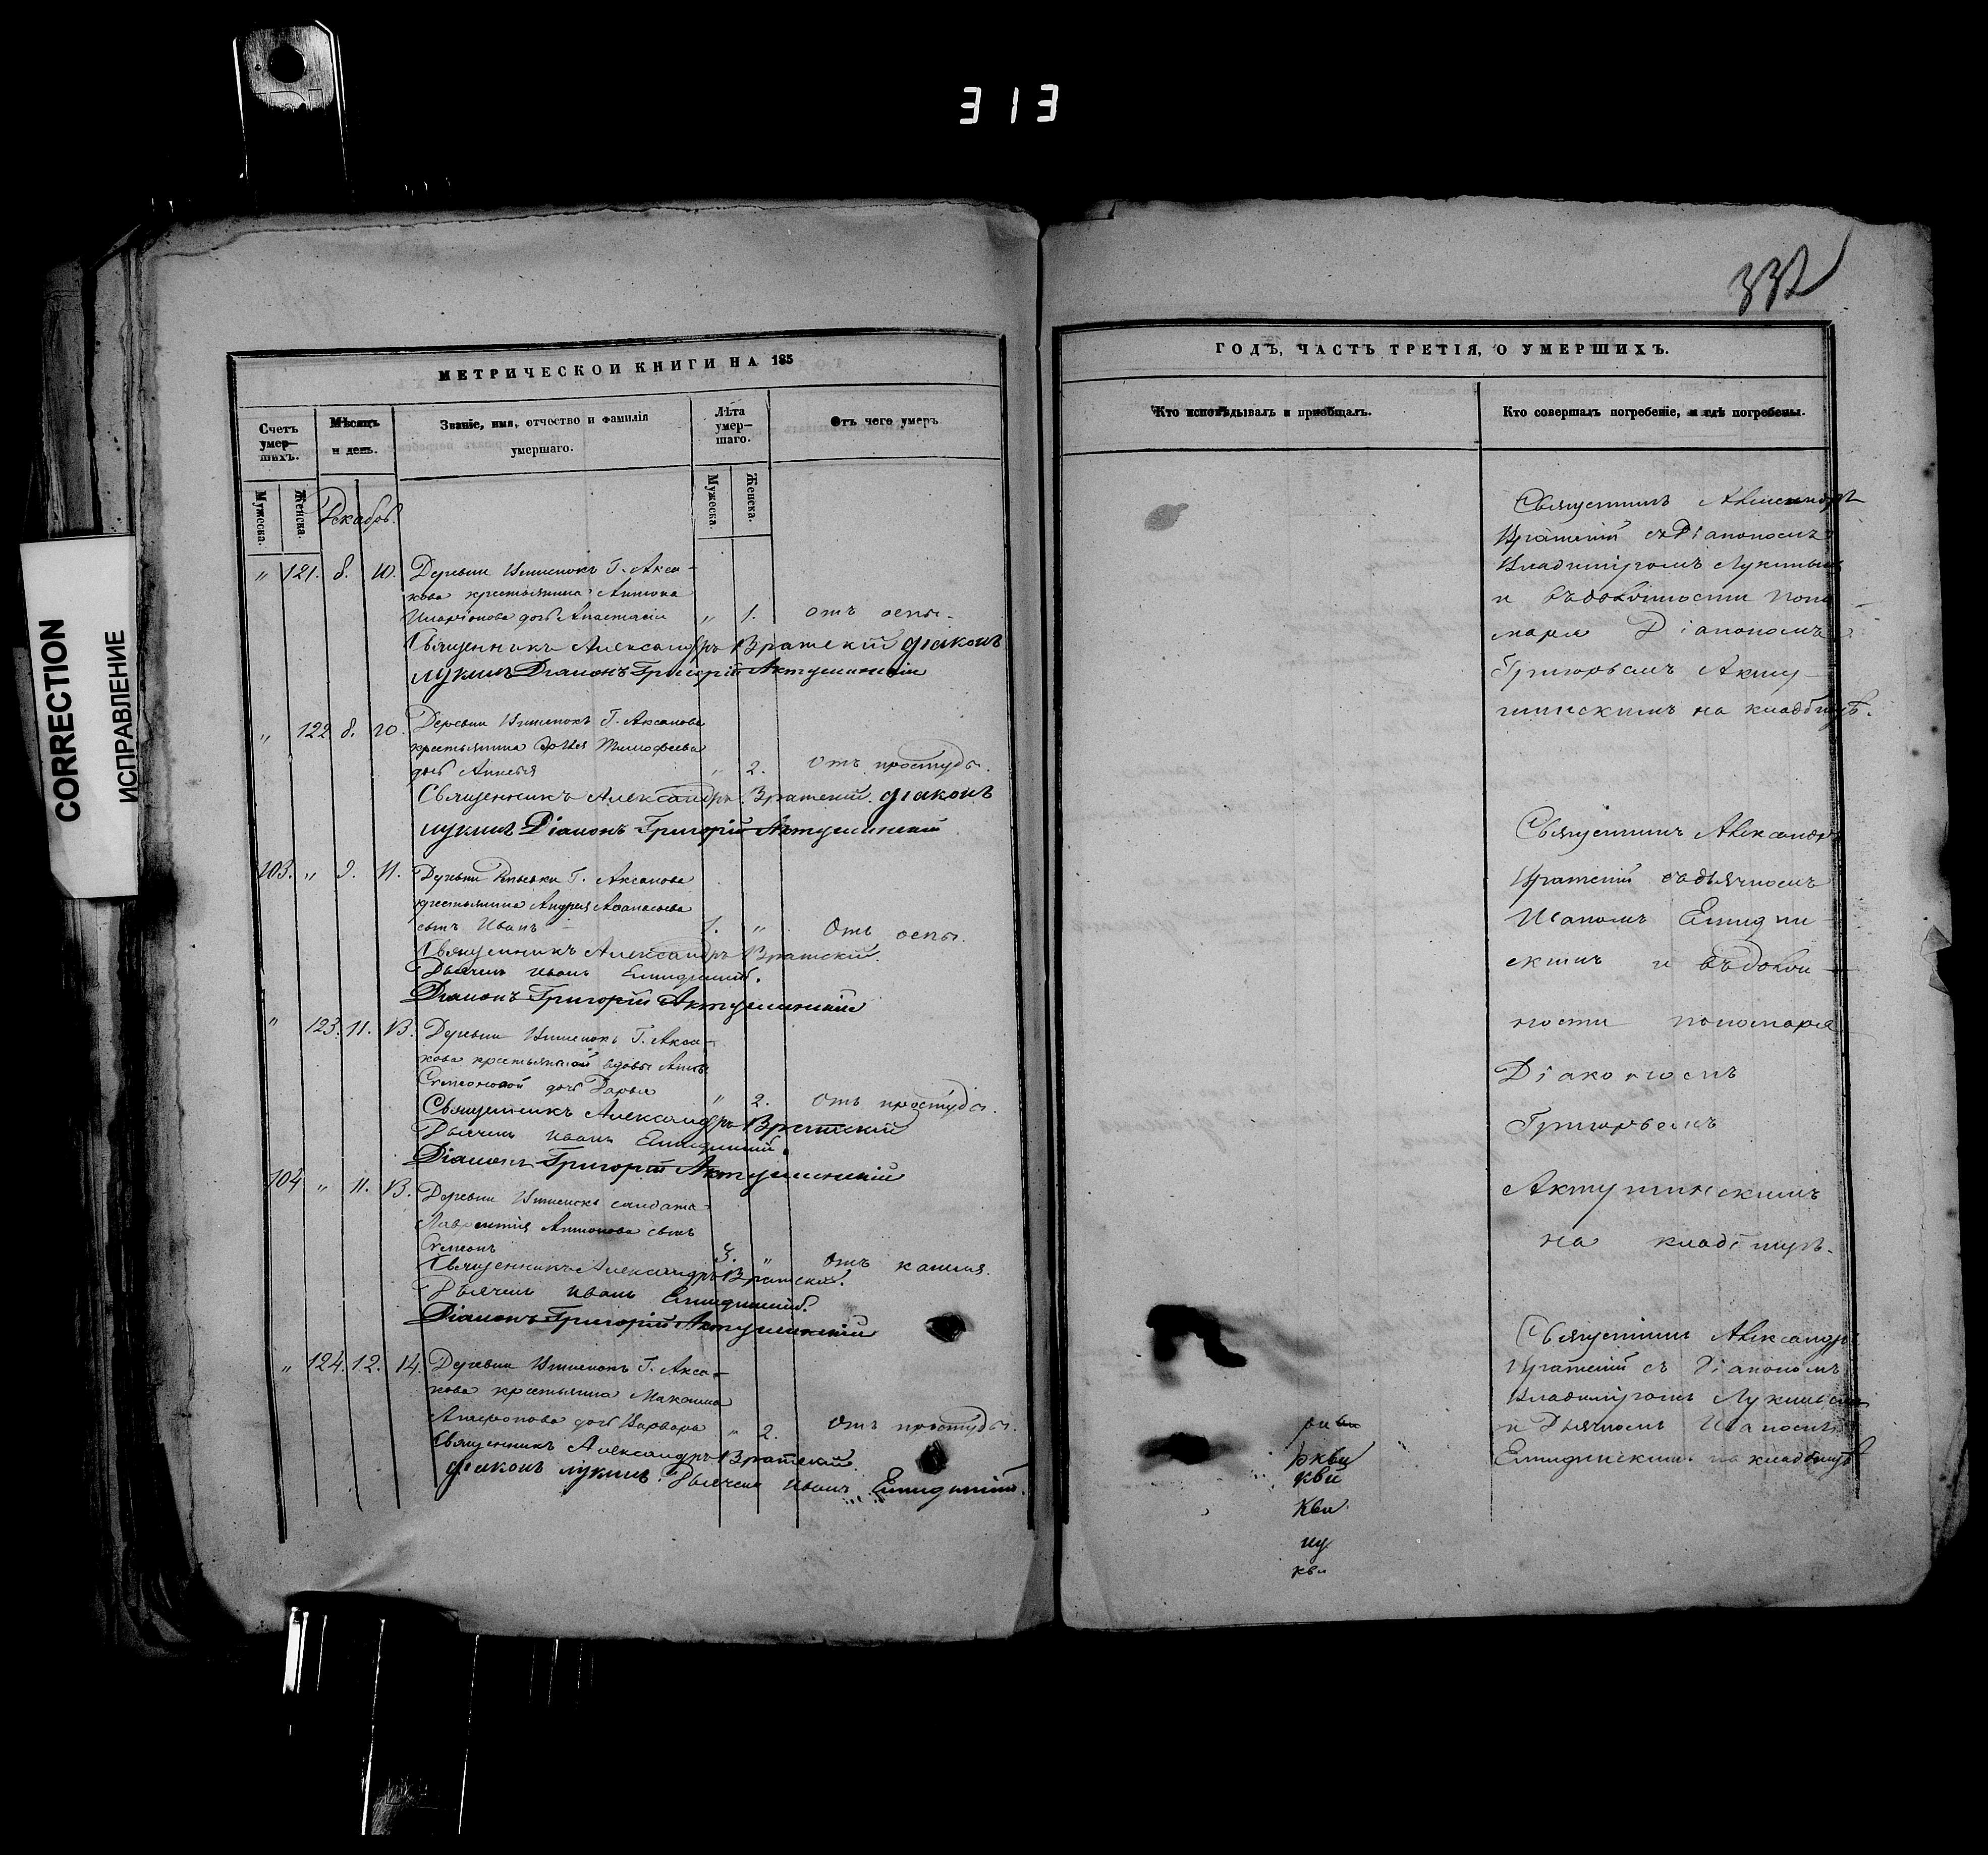 313
332
CORRECTION
ИСПРАВЛЕНИЕ
МЕТРИЧЕСКОЙ КНИГИ НА 185
Счетъ умер-шихъ.
Мѣсяцъ и день.
Званіе, имя, отчество и фамилія умершаго.
Лѣта умер-шаго.
Отъ чего умеръ
Мужеска.
Женска.
Мужеска.
Женска.
Декабрь.
" 121. 8. 10. Деревни Г. Акса-
кова крестьянина Антона
дочь Анастасія " 1. отъ оспы.
Священникъ Александръ Братскій діаконъ
Лукинъ Діаконъ Григорій Актушинскій
" 122 8. 10. Деревни Г. Аксакова
крестьянина Тимофеева
дочь " 2. Отъ простуды.
Священникъ Александръ Братскій. діаконъ
Лукинъ Діаконъ Григорій Актушинскій
103. " 9. 11. Деревни Г. Аксакова
крестьянина Андрея Афанасьева
сынъ Иванъ 1. " Отъ оспы.
Священникъ Александръ Братскій.
Дьячекъ Иванъ
Діаконъ Григорій Актушинскій
" 123. 11. 13. Деревни Г. Акса-
кова крестьянской вдовы Анны
Семеновой дочь Дарья " 2. Отъ простуды.
Священникъ Александръ Братскій
Дьячекъ Иванъ
Діаконъ Григорій Актушинскій
104 " 11. 13. Деревни солдата
Лаврентія Антонова сынъ
Семенъ 3. " Отъ кашля.
Священникъ Александръ Братскій.
Дьячекъ Иванъ
Діаконъ Григорій Актушинскій
" 124. 12. 14. Деревни Г. Акса-
кова крестьянина Максима
дочь Варвара " 2. Отъ простуды.
Священникъ Александръ Братскій.
діаконъ Лукинъ. Дьячекъ Иванъ
ГОДЪ, ЧАСТЬ ТРЕТІЯ, О УМЕРШИХЪ.
Кто исповѣдывалъ и пріобщалъ.
Кто совершалъ погребеніе, и гдѣ погребены.
Священникъ Александръ
Братскій съ Діакономъ
Владиміромъ Лукинымъ
и въ должности поно-
маря Діакономъ
Григорьемъ Акту-
шинскимъ на кладбищѣ.
Священникъ Александръ
Братскій съ дьячкомъ
Иваномъ
скимъ и въ долж-
ности пономаря
Діакономъ
Григорьемъ
Актушинскимъ
на кладбищѣ.
Священникъ Александръ
Братскій съ Діакономъ
Владиміромъ Лукинымъ
и Дьячкомъ Иваномъ
на кладбищѣ
ркви
кви
кви